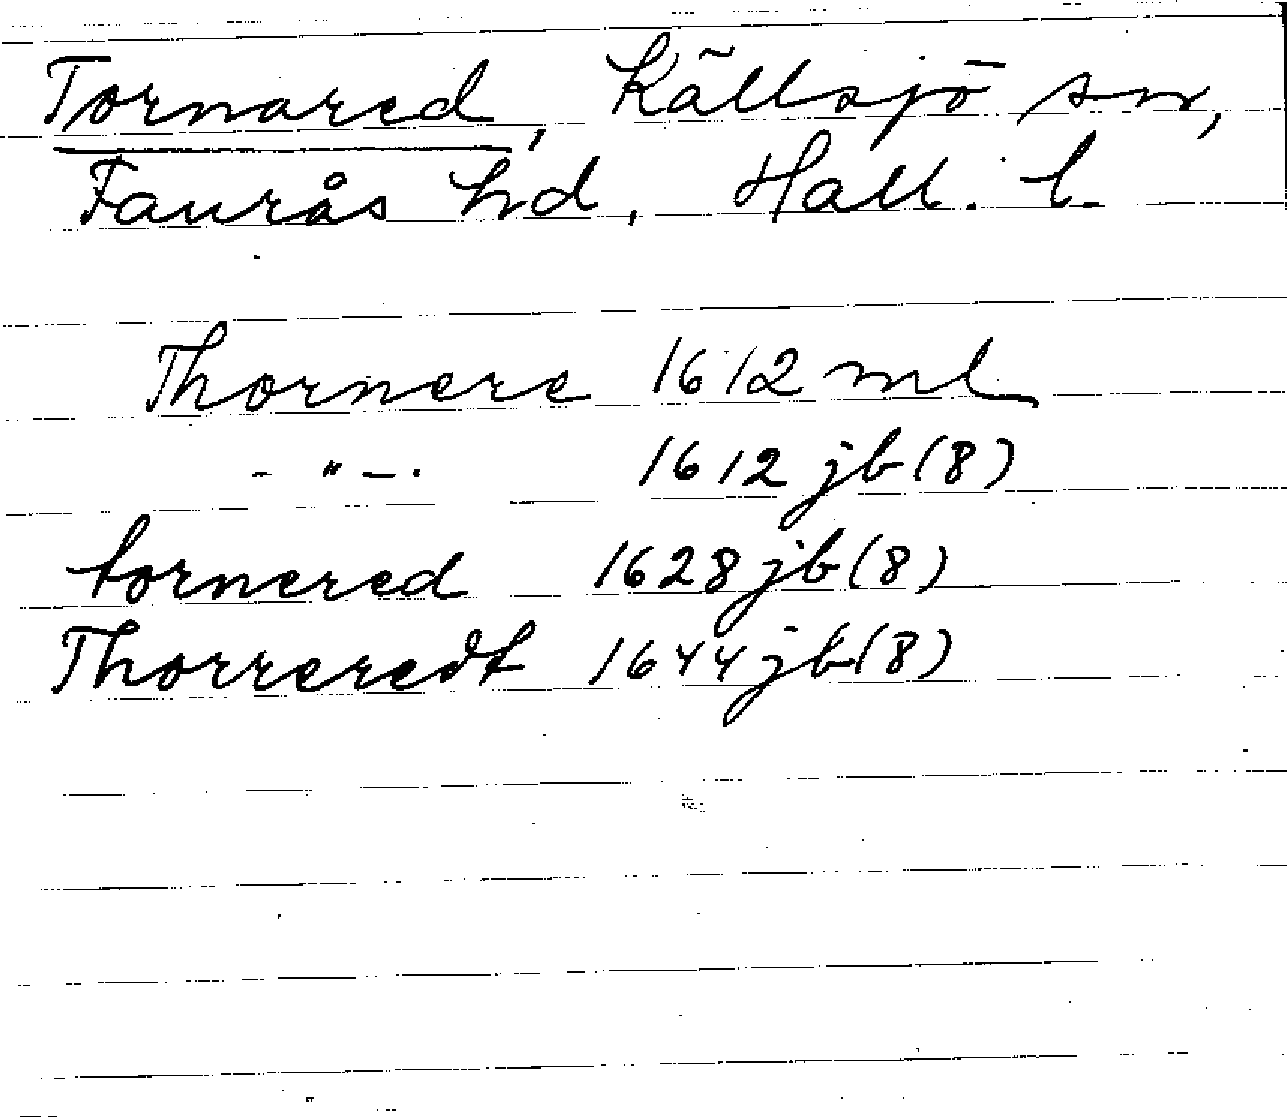 Tornared, Källsjö sn,
Faurås hd, Hall. l.
Thornere 1612 ml
- " -. 1612 jb (8)
tornered 1628 jb (8)
Thorreredt 1644 jb (8)